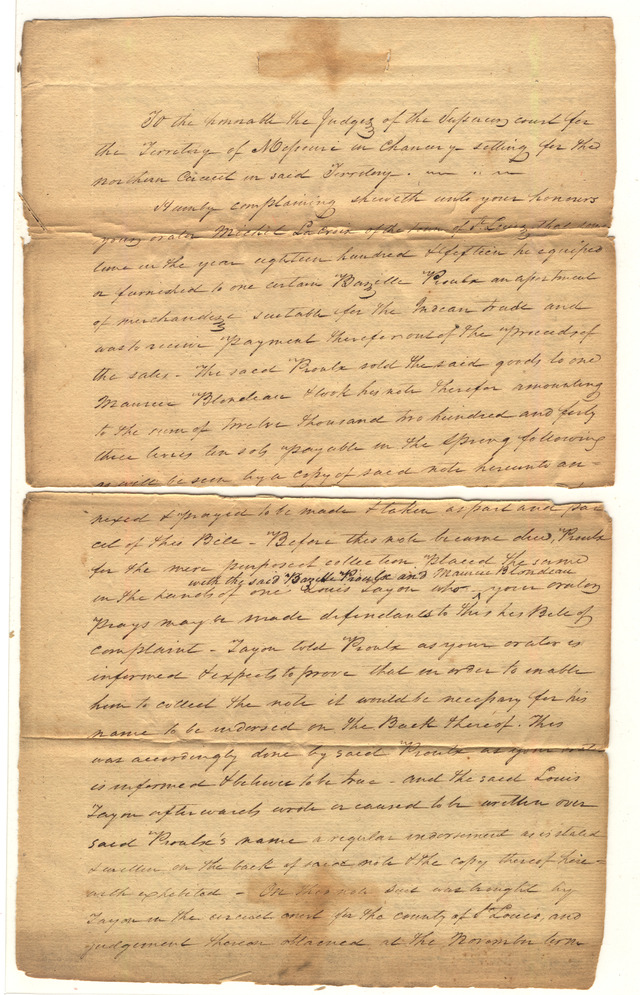 To the honorable the Judges of the Superior court for
the Territory of Missouri in Chancery sitting for the
northern Circuit in said Territory.
Humbly complaining sheweth unto your honours
your orator Michel La Croix of the town of St. Louis that some
time in the year eighteen hundred & fifteen he equiped
or furnished to one certain Bazelle Proulx an apartment
of merchandize suitable for the Indian trade and
was to receive payment therefor out of the proceeds of
the sales - The said Proulx sold the said goods to one
Maurice Blondeau & took his note therefor amounting
to the sum of twelve thousand two hundred and forty
three livres ten sols payable in the Spring following
as will be seen by a copy of said note hereunto an=
nexed & prayed to be made & taken as part and par
cel of this Bill - Before this note became due, Proulx
for the mere purpose of collection Placed the same
with the said Bazelle Proulx and Maurice Blondeau
in the hands of one Louis Tayon who ^ your orator
Prays may be made defendants to this his Bill of
complaint - Tayon told Proulx as your orator is
informed & expects to prove that in order to enable
him to collect the note it would be necessary for his
name to be indorsed on the Back thereof. This
was accordingly done by said Proulx as your orator
is informed & believes to be true - and the said Louis
Tayon afterwards wrote or caused to be written over
said Proulx's name a regular indorsement as is stated
& written on the back of said note & the copy thereof here=
with exhibited - On this note suit was brought by
Tayon in the circuit court for the county of St Louis, and
judgement thereon obtained at the November term